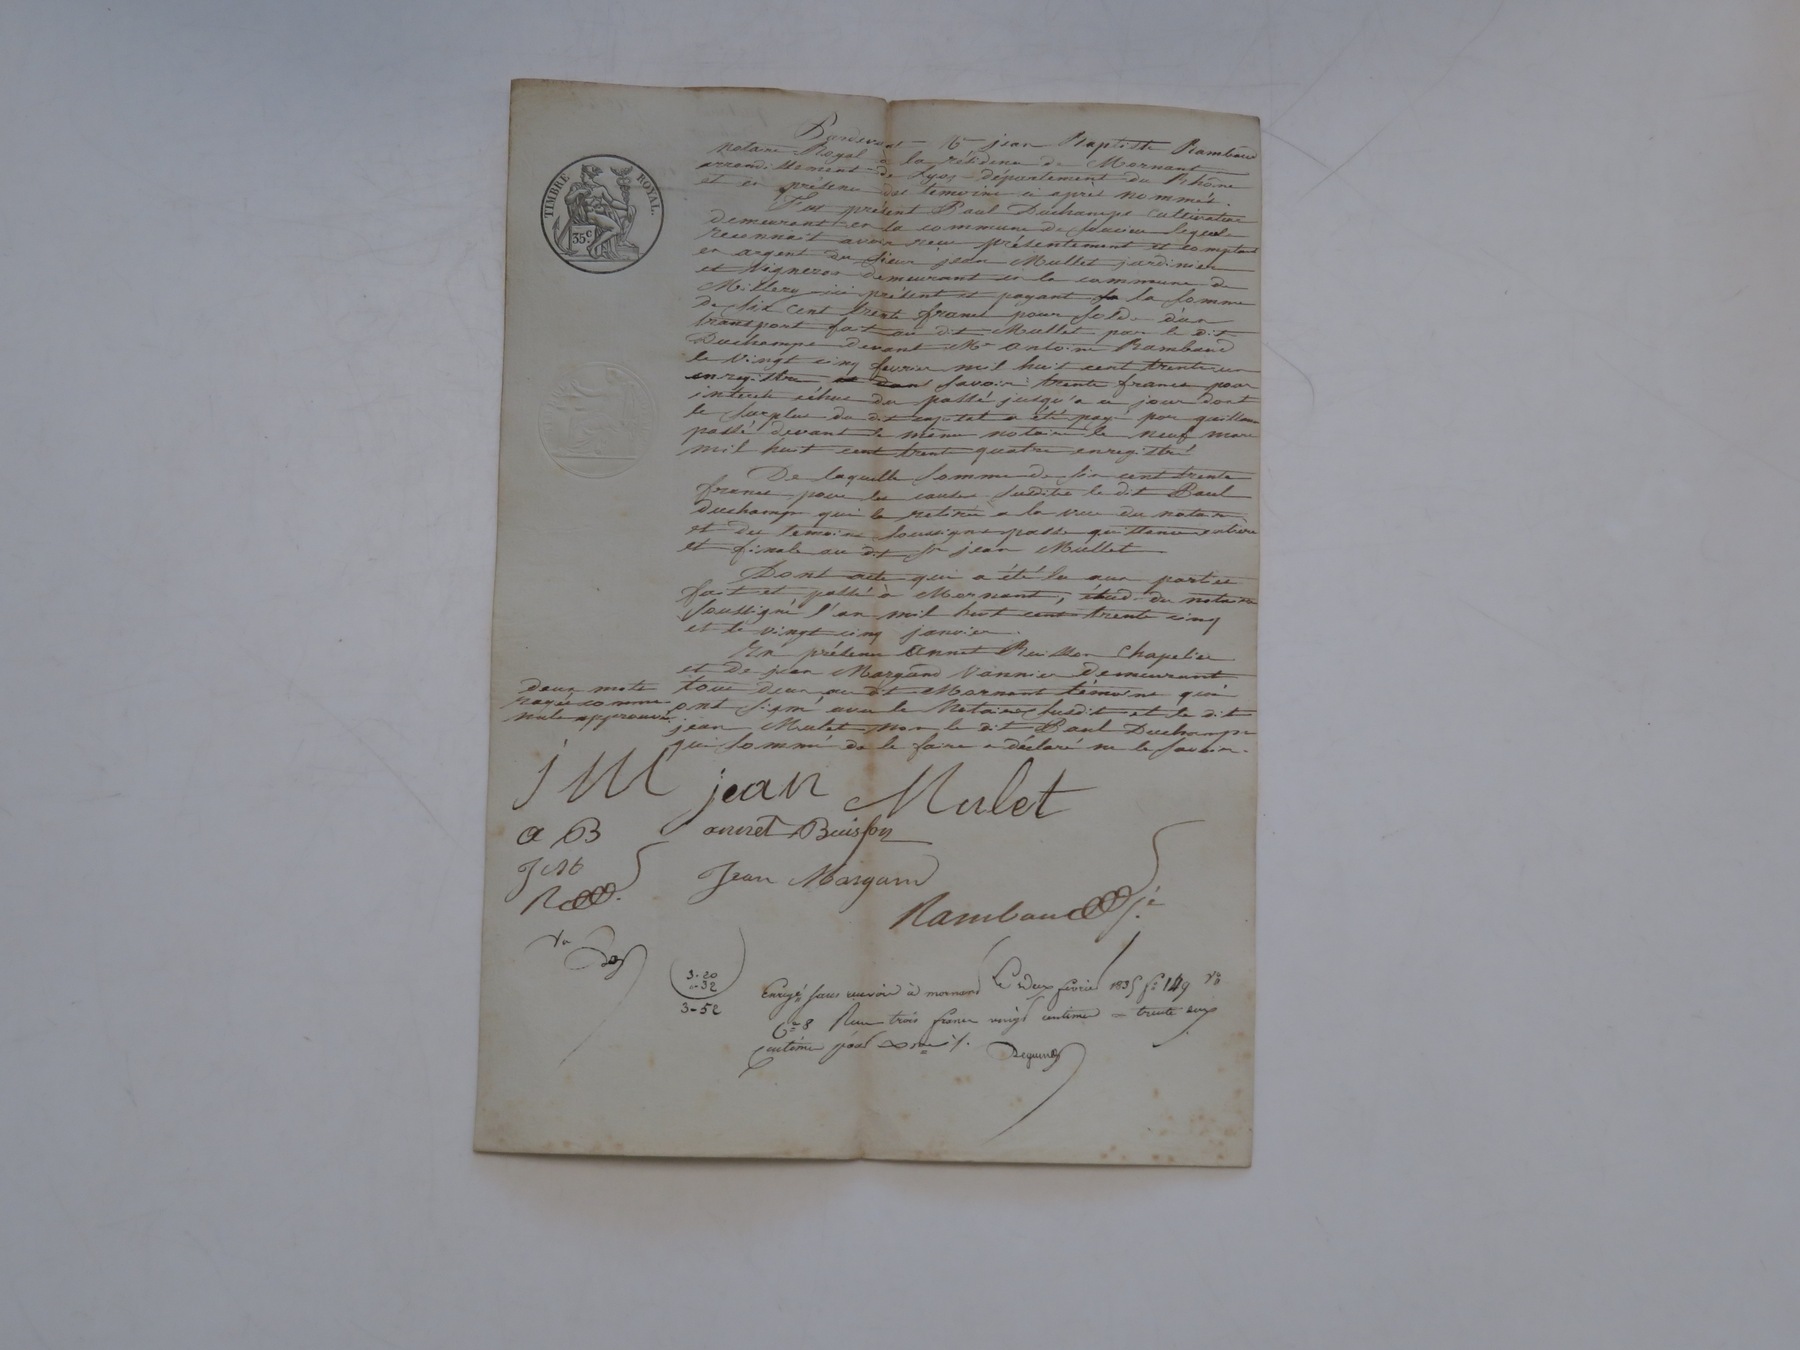 TIMBRE ROYAL.
35 c
Pardevant Me jean Baptiste Rambaud
notaire Royal à la résidence de Mornant
arrondissement de Lyon département du Rhône
et en présence des temoins ci après nommés.
Fut présent Paul Duchamps Cultivateur
demeurant en la commune de Soucieu lequel
reconnait avoir reçu présentement et comptant
en argent du Sieur jean Mullet jardinier
et Vigneron demeurant en la commune de
Millery ici présent et payant la somme
de Six Cent trente francs pour Solde d'un
transport fait au dit Mullet par le dit
Duchamps devant Me Antoine Rambaud
le Vingt cinq fevrier mil huit cent trente un
enregistré Savoir trente francs pour
interets échus du passé jusqu'à ce jour dont
le surplus du dit capital a été payé par quittance
passé devant le même notaire le neuf mars
mil huit cent trente quatre enregistré
De laquelle Somme de Six cent trente
francs pour les causes Susdites le dit Paul
Duchamp qui la retirée a la vue du notaire
et des temoins Soussignés passe quittance entière
et finale au dit Sr jean Mullet
Dont acte qui a été lu aux parties
fait et passé à Mornant, étude du notaire
Soussigné l'an mil huit cent trente cinq
et le vingt cinq janvier.
En présence Annet Buisson Chapelier
et de jean Margand Vannier demeurant
tous deux au dit Mornant témoins qui
ont signé avec le Notaire Susdit et le dit
jean Mulet Non le dit Paul Duchamps
qui Sommé de le faire a déclaré ne le Savoir.
deux mots
rayés comme
nuls approuvés
j M jean Mulet
a B annet Buisson
J M Jean Margand
R Rambaud je
3-20
-32
3-52
Enregé sans renvoi à mornant Le deux février 1835 fo 149 Vo
Ce 8 Reçu trois francs vingt centimes trente deux
centimes pour